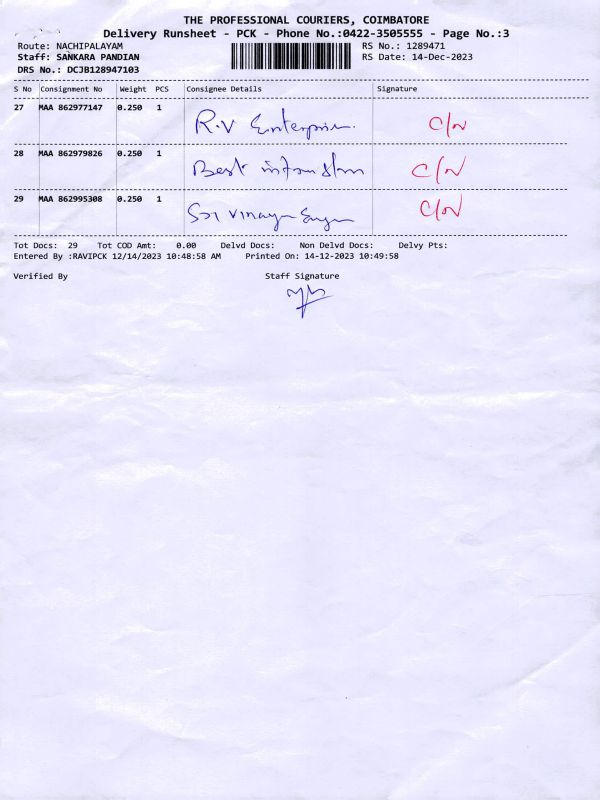 THE PROFESSIONAL COURIERS, COIMBATORE
Delivery Runsheet - PCK - Phone No.:0422-3505555 - Page No.:3
Route: NACHIPALAYAM RS No.: 1289471
Staff: SANKARA PANDIAN RS Date: 14-Dec-2023
DRS No.: DCJB128947103
S No Consignment No Weight PCS Consignee Details Signature
27 MAA 862977147 0.250 1 R.V Enterprise. C/N
28 MAA 862979826 0.250 1 Best C/N
29 MAA 862995308 0.250 1 Sri Vinayaga C/N
Tot Docs: 29 Tot COD Amt: 0.00 Delvd Docs: Non Delvd Docs: Delvy Pts:
Entered By :RAVIPCK 12/14/2023 10:48:58 AM Printed On: 14-12-2023 10:49:58
Verified By Staff Signature